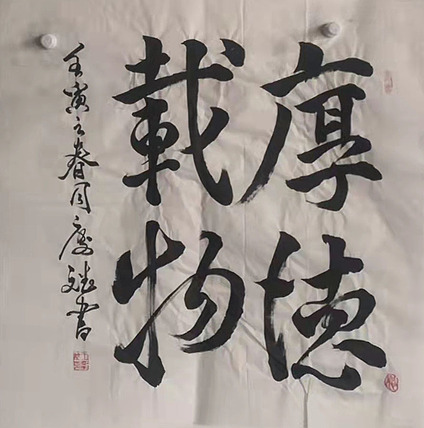 厚德
載物
壬寅之春月慶斌書